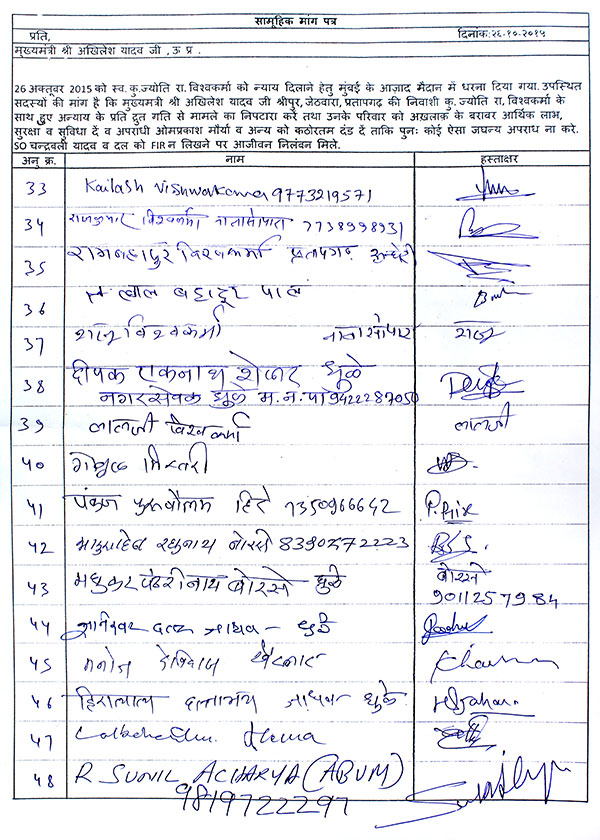 सामूहिक मांग पत्र
प्रति, दिनांक:२६-१०-२०१५
मुख्यमंत्री श्री अखिलेश यादव जी ,ऊ प्र .
26 अक्तूबर 2015 को स्व. कु.ज्योति रा. विश्वकर्मा को न्याय दिलाने हेतु मुंबई के आज़ाद मैदान में धरना दिया गया. उपस्थित
सदस्यों की मांग है कि मुख्यमंत्री श्री अखिलेश यादव जी श्रीपुर, जेठवारा, प्रतापगढ़ की निवाशी कु. ज्योति रा, विश्वकर्मा के
साथ हुए अन्याय के प्रति द्रुत गति से मामले का निपटारा करे तथा उनके परिवार को अख़लाक़ के बराबर आर्थिक लाभ,
सुरक्षा व सुविधा दें व अपराधी ओमप्रकाश मौर्या व अन्य को कठोरतम दंड दें ताकि पुनः कोई ऐसा जघन्य अपराध ना करे.
SO चन्द्रबली यादव व दल को FIR न लिखने पर आजीवन निलंबन मिले.
अनु क्र. नाम हस्ताक्षर
33 Kailash Vishwakarma 9773219571
34 राजकुमार विश्वकर्मा नालासोपारा 7738998931
35 रामबहादुर विश्वकर्मा प्रतापगढ़ अन्धेरी
36 लाल बहादूर पाल
37 राजू विश्वकर्मा नालासोपारा राजू
38 दीपक एकनाथ शेळार धुळे
नगरसेवक धुळे म.न.पा 9422287050
39 लालजी विश्वकर्मा लालजी
40 मिस्तरी
41 पंकज पुरुषोत्तम हिरे 7350966642
42 भाऊसाहेब रघुनाथ बोरसे
43 मधुकर पंढरीनाथ बोरसे धुळे बोरसे
9011257984
44 ज्ञानेश्वर जाधव - धुळे
45 मनोज
46 हिरालाल दत्तात्रय जाधव धुळे
47
48 R SUNIL ACHARYA (ABUM)
9819722297